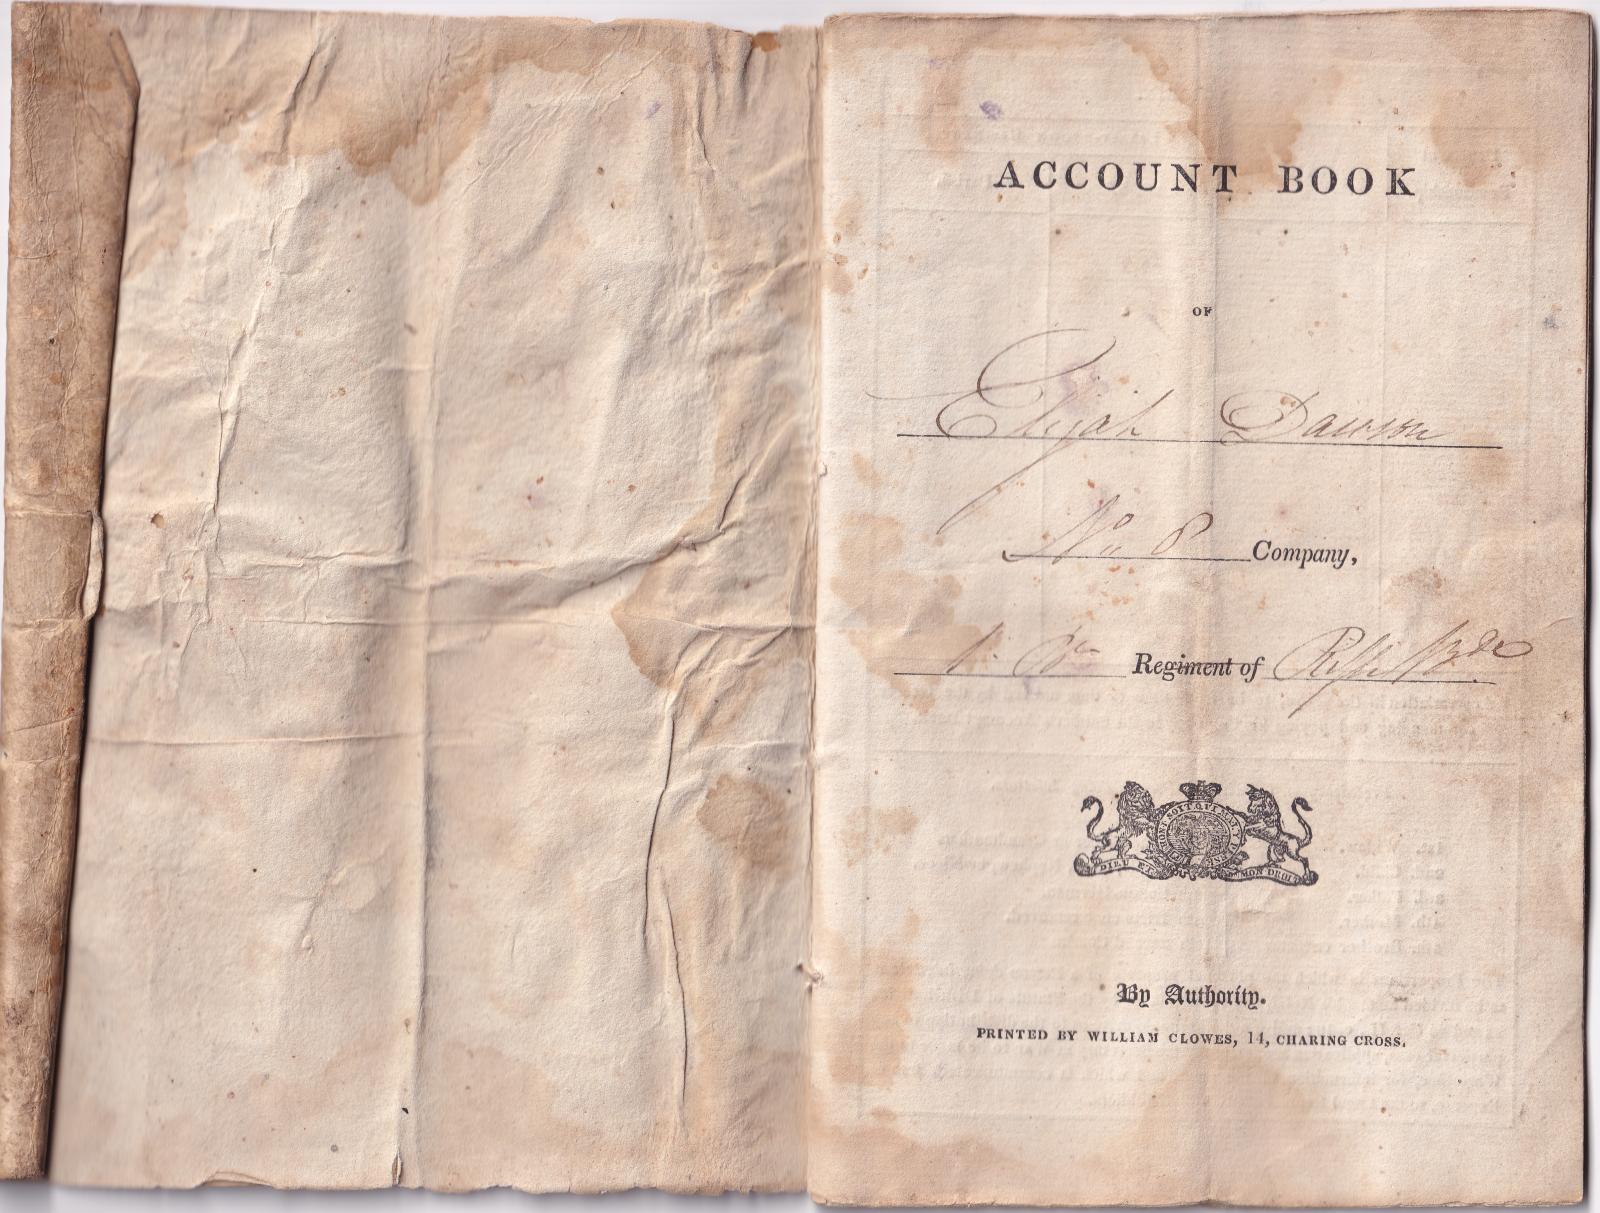 ACCOUNT BOOK
OF
Elijah Dawson
No. 8 Company,
1. Bn Regiment of Rifle Bde
HONI SOIT QUI MAL Y PENSE
DIEU ET MON DROIT
By Authority.
PRINTED BY WILLIAM CLOWES, 14, CHARING CROSS.